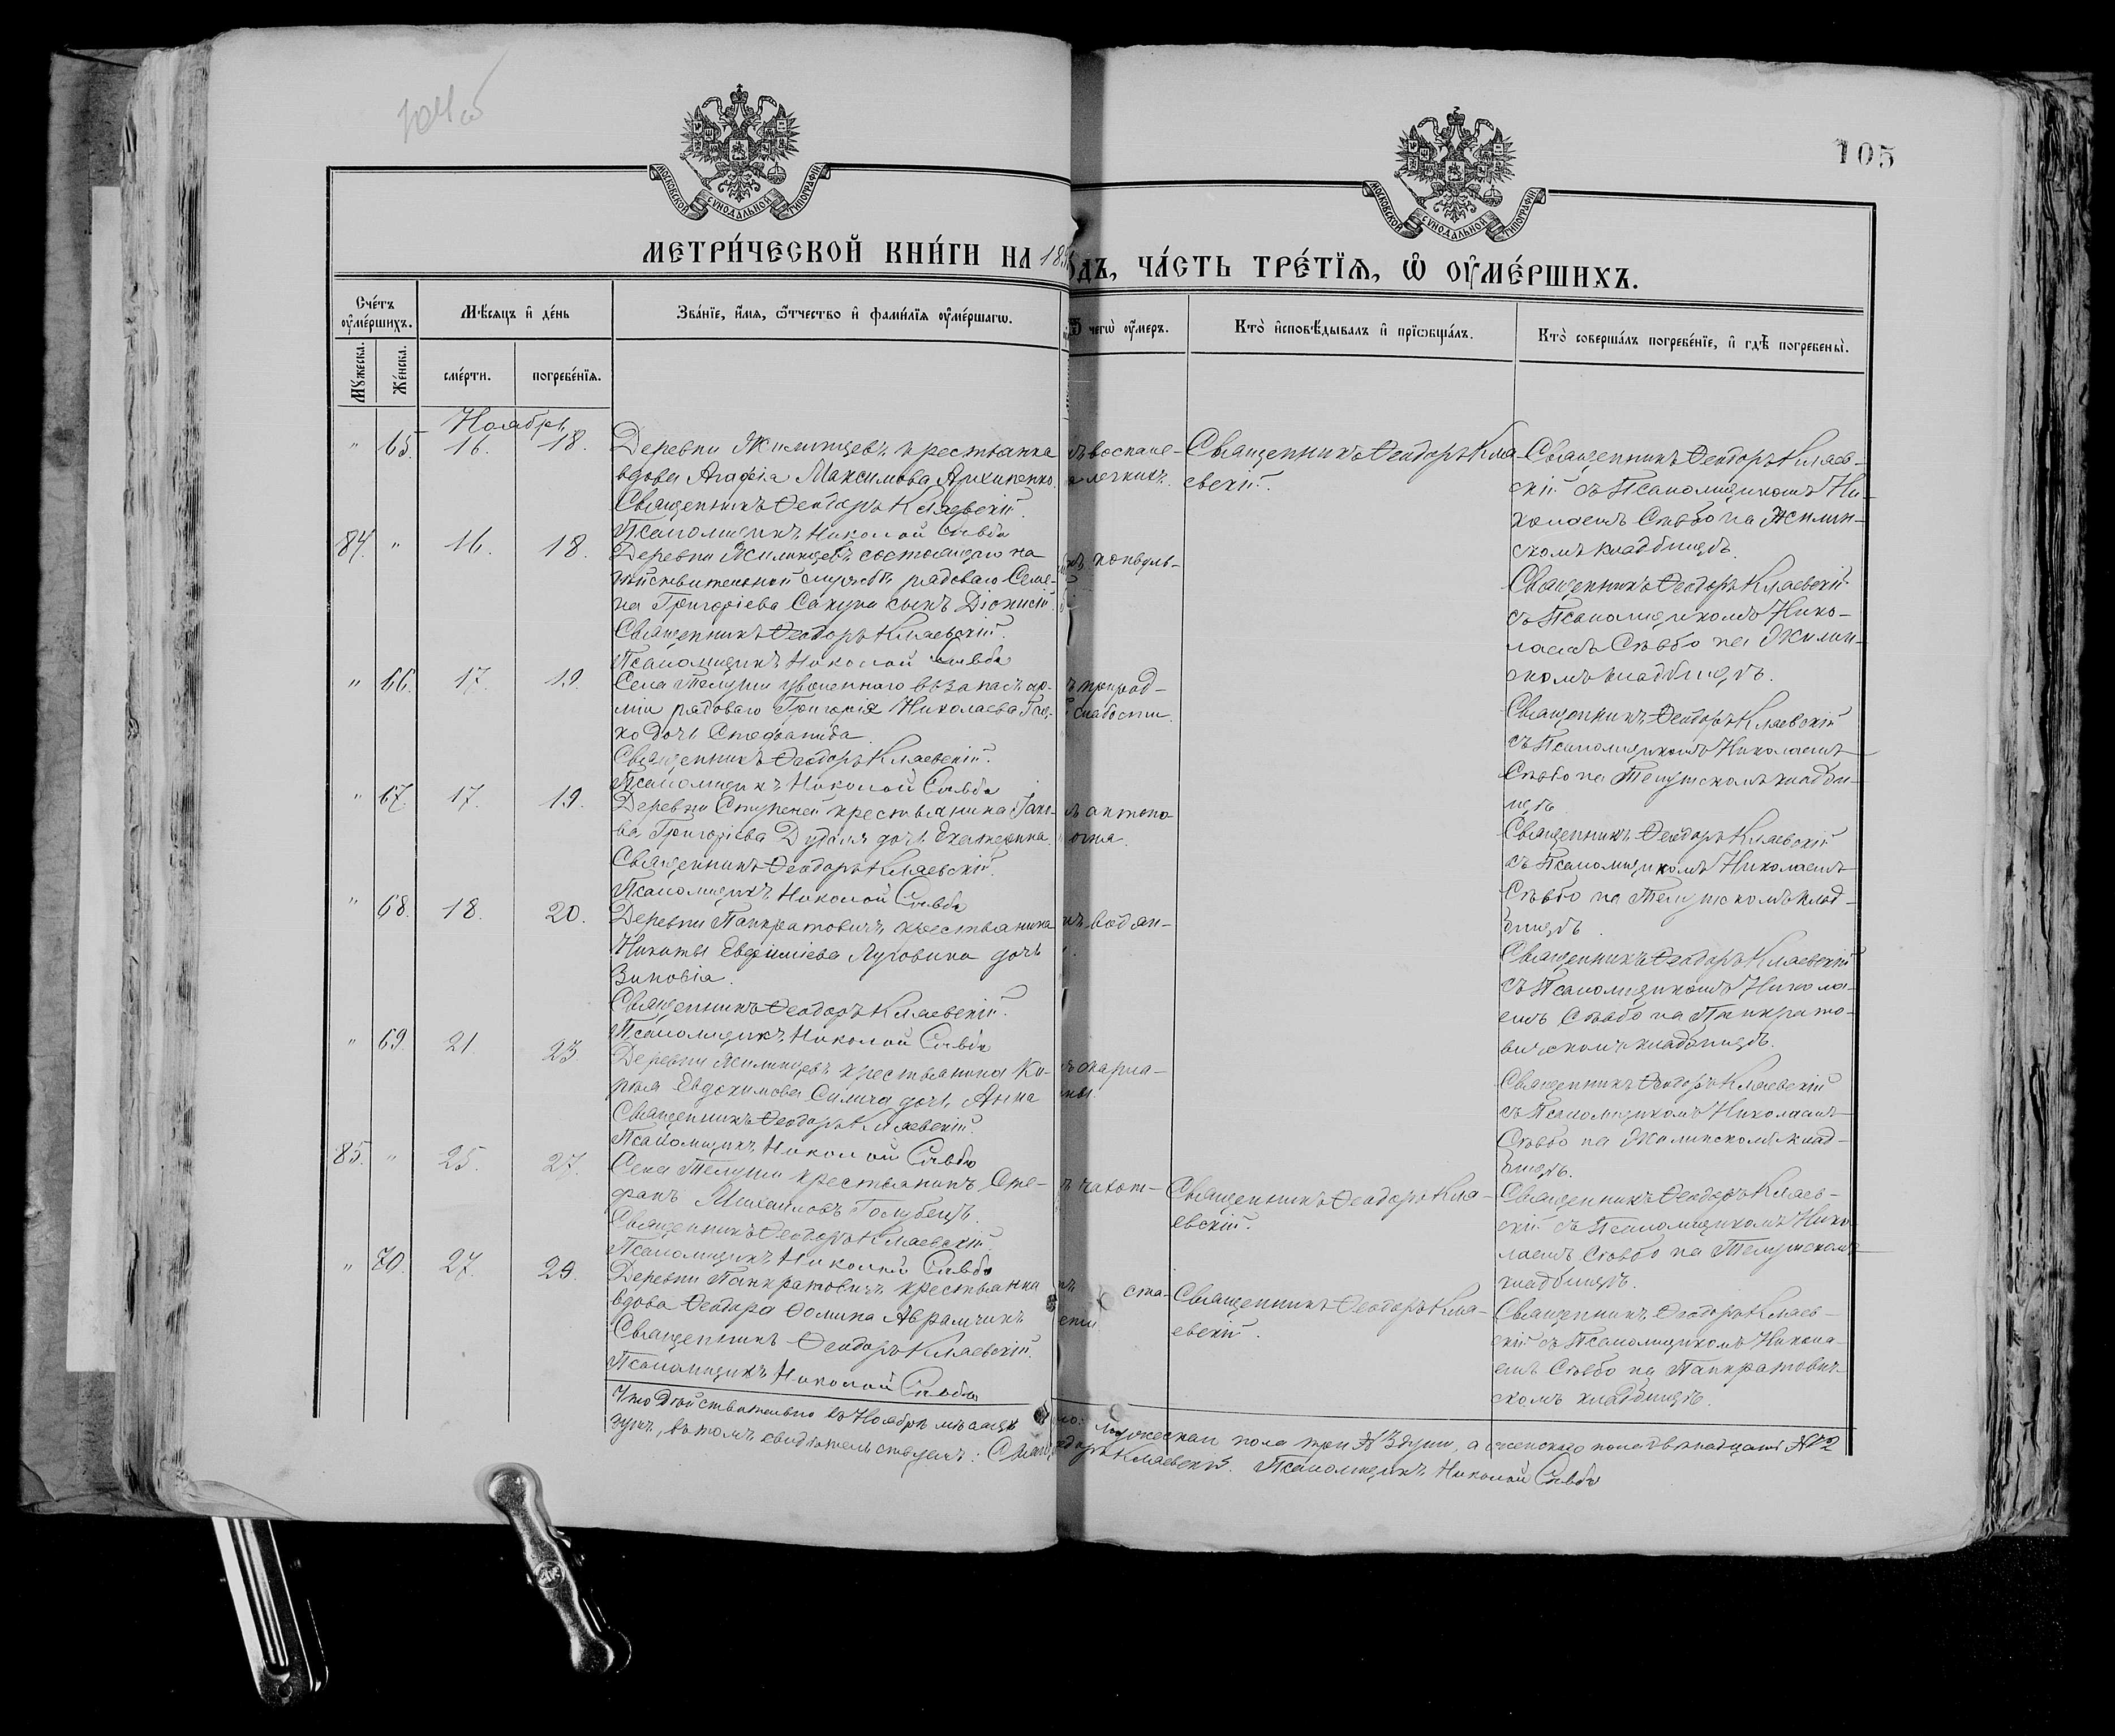 105
МОСКОВСКОЙ СѴНОДАЛЬНОЙ ТИПОГРАФІИ
МОСКОВСКОЙ СѴНОДАЛЬНОЙ ТИПОГРАФІИ
МЕТРИ́ЧЕСКОЙ КНИ́ГИ НА 18
ДЪ, ЧА́СТЬ ТРЕ́ТЇѦ, Ѡ҆ ОУ҆МЕ́РШИХЪ.
Сче́тъ оу҆ме́ршихъ.
Мꙋ́жеска.
Же́нска.
Мѣ́сяцъ и҆ де́нь
сме́рти.
погребе́нїѧ.
Зва́нїе, и҆́мѧ, ѻ҆́тчество и҆ фами́лїѧ оу҆ме́ршагѡ.
чегѡ̀ оу҆́меръ.
Кто̀ и҆сповѣ́дывалъ и҆ прїѡбща́лъ.
Кто̀ соверша́лъ погребе́нїе, и҆ гдѣ̀ погребены̀.
Ноябрь
" 65. 16. 18.
Деревни Жилинцевъ крестьянка
вдова Агафія Максимова Архипенко
Священникъ Ѳеодоръ Клаевскій.
Псаломщикъ Николай Сѣвбо
воспале-
легкихъ.
Священникъ Ѳеодоръ Кла-
евскій.
Священникъ Ѳеодоръ Клаев-
скій съ Псаломщикомъ Ни-
колаемъ Сѣвбо на Жилин-
скомъ кладбищѣ.
84. " 16. 18.
Деревни Жилинцевъ состоящаго на
дѣйствительной службѣ рядоваго Семе-
на Григоріева Сакуна сынъ Діонисій.
Священникъ Ѳеодоръ Клаевскій.
Псаломщикъ Николай Сѣвбо
конвуль-
Священникъ Ѳеодоръ Клаевскій
съ Псаломщикомъ Нико-
лаемъ Сѣвбо на Жилин-
скомъ кладбищѣ.
" 66. 17. 19.
Села Телуши уволеннаго въ запасъ ар-
міи рядоваго Григорія Николаева
ко дочь Стефанида.
Священникъ Ѳеодоръ Клаевскій.
Псаломщикъ Николай Сѣвбо
природ-
слабости.
Священникъ Ѳеодоръ Клаевскій
съ Псаломщикомъ Николаемъ
Сѣвбо на Телушскомъ кладби-
щѣ
" 67. 17. 19.
Деревни Ступеней крестьянина Іако-
ва Григоріева Дудаля дочь Екатерина
Священникъ Ѳеодоръ Клаевскій.
Псаломщикъ Николай Сѣвбо
антоно
огня.
Священникъ Ѳеодоръ Клаевскій
съ Псаломщикомъ Николаемъ
Сѣвбо на Телушскомъ клад-
бищѣ.
" 68. 18. 20.
Деревни Панкратовичъ крестьянина
Никиты Евфиміева Луговина дочь
Зиновія.
Священникъ Ѳеодоръ Клаевскій.
Псаломщикъ Николай Сѣвбо
водян-
Священникъ Ѳеодоръ Клаевскій
съ Псаломщикомъ Никола-
емъ Сѣвбо на Панкрато-
вичскомъ кладбищѣ.
" 69. 21. 23.
Деревни Жилинцевъ крестьянина Ки-
рила Евдокимова Силича дочь Анна
Священникъ Ѳеодоръ Клаевскій.
Псаломщикъ Николай Сѣвбо
скарла-
ны.
Священникъ Ѳеодоръ Клаевскій
съ Псаломщикомъ Николаемъ
Сѣвбо на Жилинскомъ клад-
бищѣ.
85. " 25. 27.
Села Телуши крестьянинъ Сте-
фанъ Михаиловъ Голубецъ.
Священникъ Ѳеодоръ Клаевскій.
Псаломщикъ Николай Сѣвбо
чахот-
Священникъ Ѳеодоръ Кла-
евскій.
Священникъ Ѳеодоръ Клаев-
скій съ Псаломщикомъ Нико
лаемъ Сѣвбо на Телушскомъ
кладбищѣ.
" 70. 27. 29.
Деревни Панкратовичъ крестьянка
вдова Ѳеодора Ѳомина Абрамчикъ
Священникъ Ѳеодоръ Клаевскій.
Псаломщикъ Николай Сѣвбо
ста-
Священникъ Ѳеодоръ Кла-
евскій.
Священникъ Ѳеодоръ Клаев-
скій съ Псаломщикомъ Никола-
емъ Сѣвбо на Панкратович-
скомъ кладбищѣ.
Что дѣйствительно въ Ноябрѣ мѣсяцѣ мужеска пола три № 3 души, а женскаго пола двѣнадцать № 12
душъ, въ томъ свидѣтельствуемъ: Клаевскій. Псаломщикъ Николай Сѣвбо